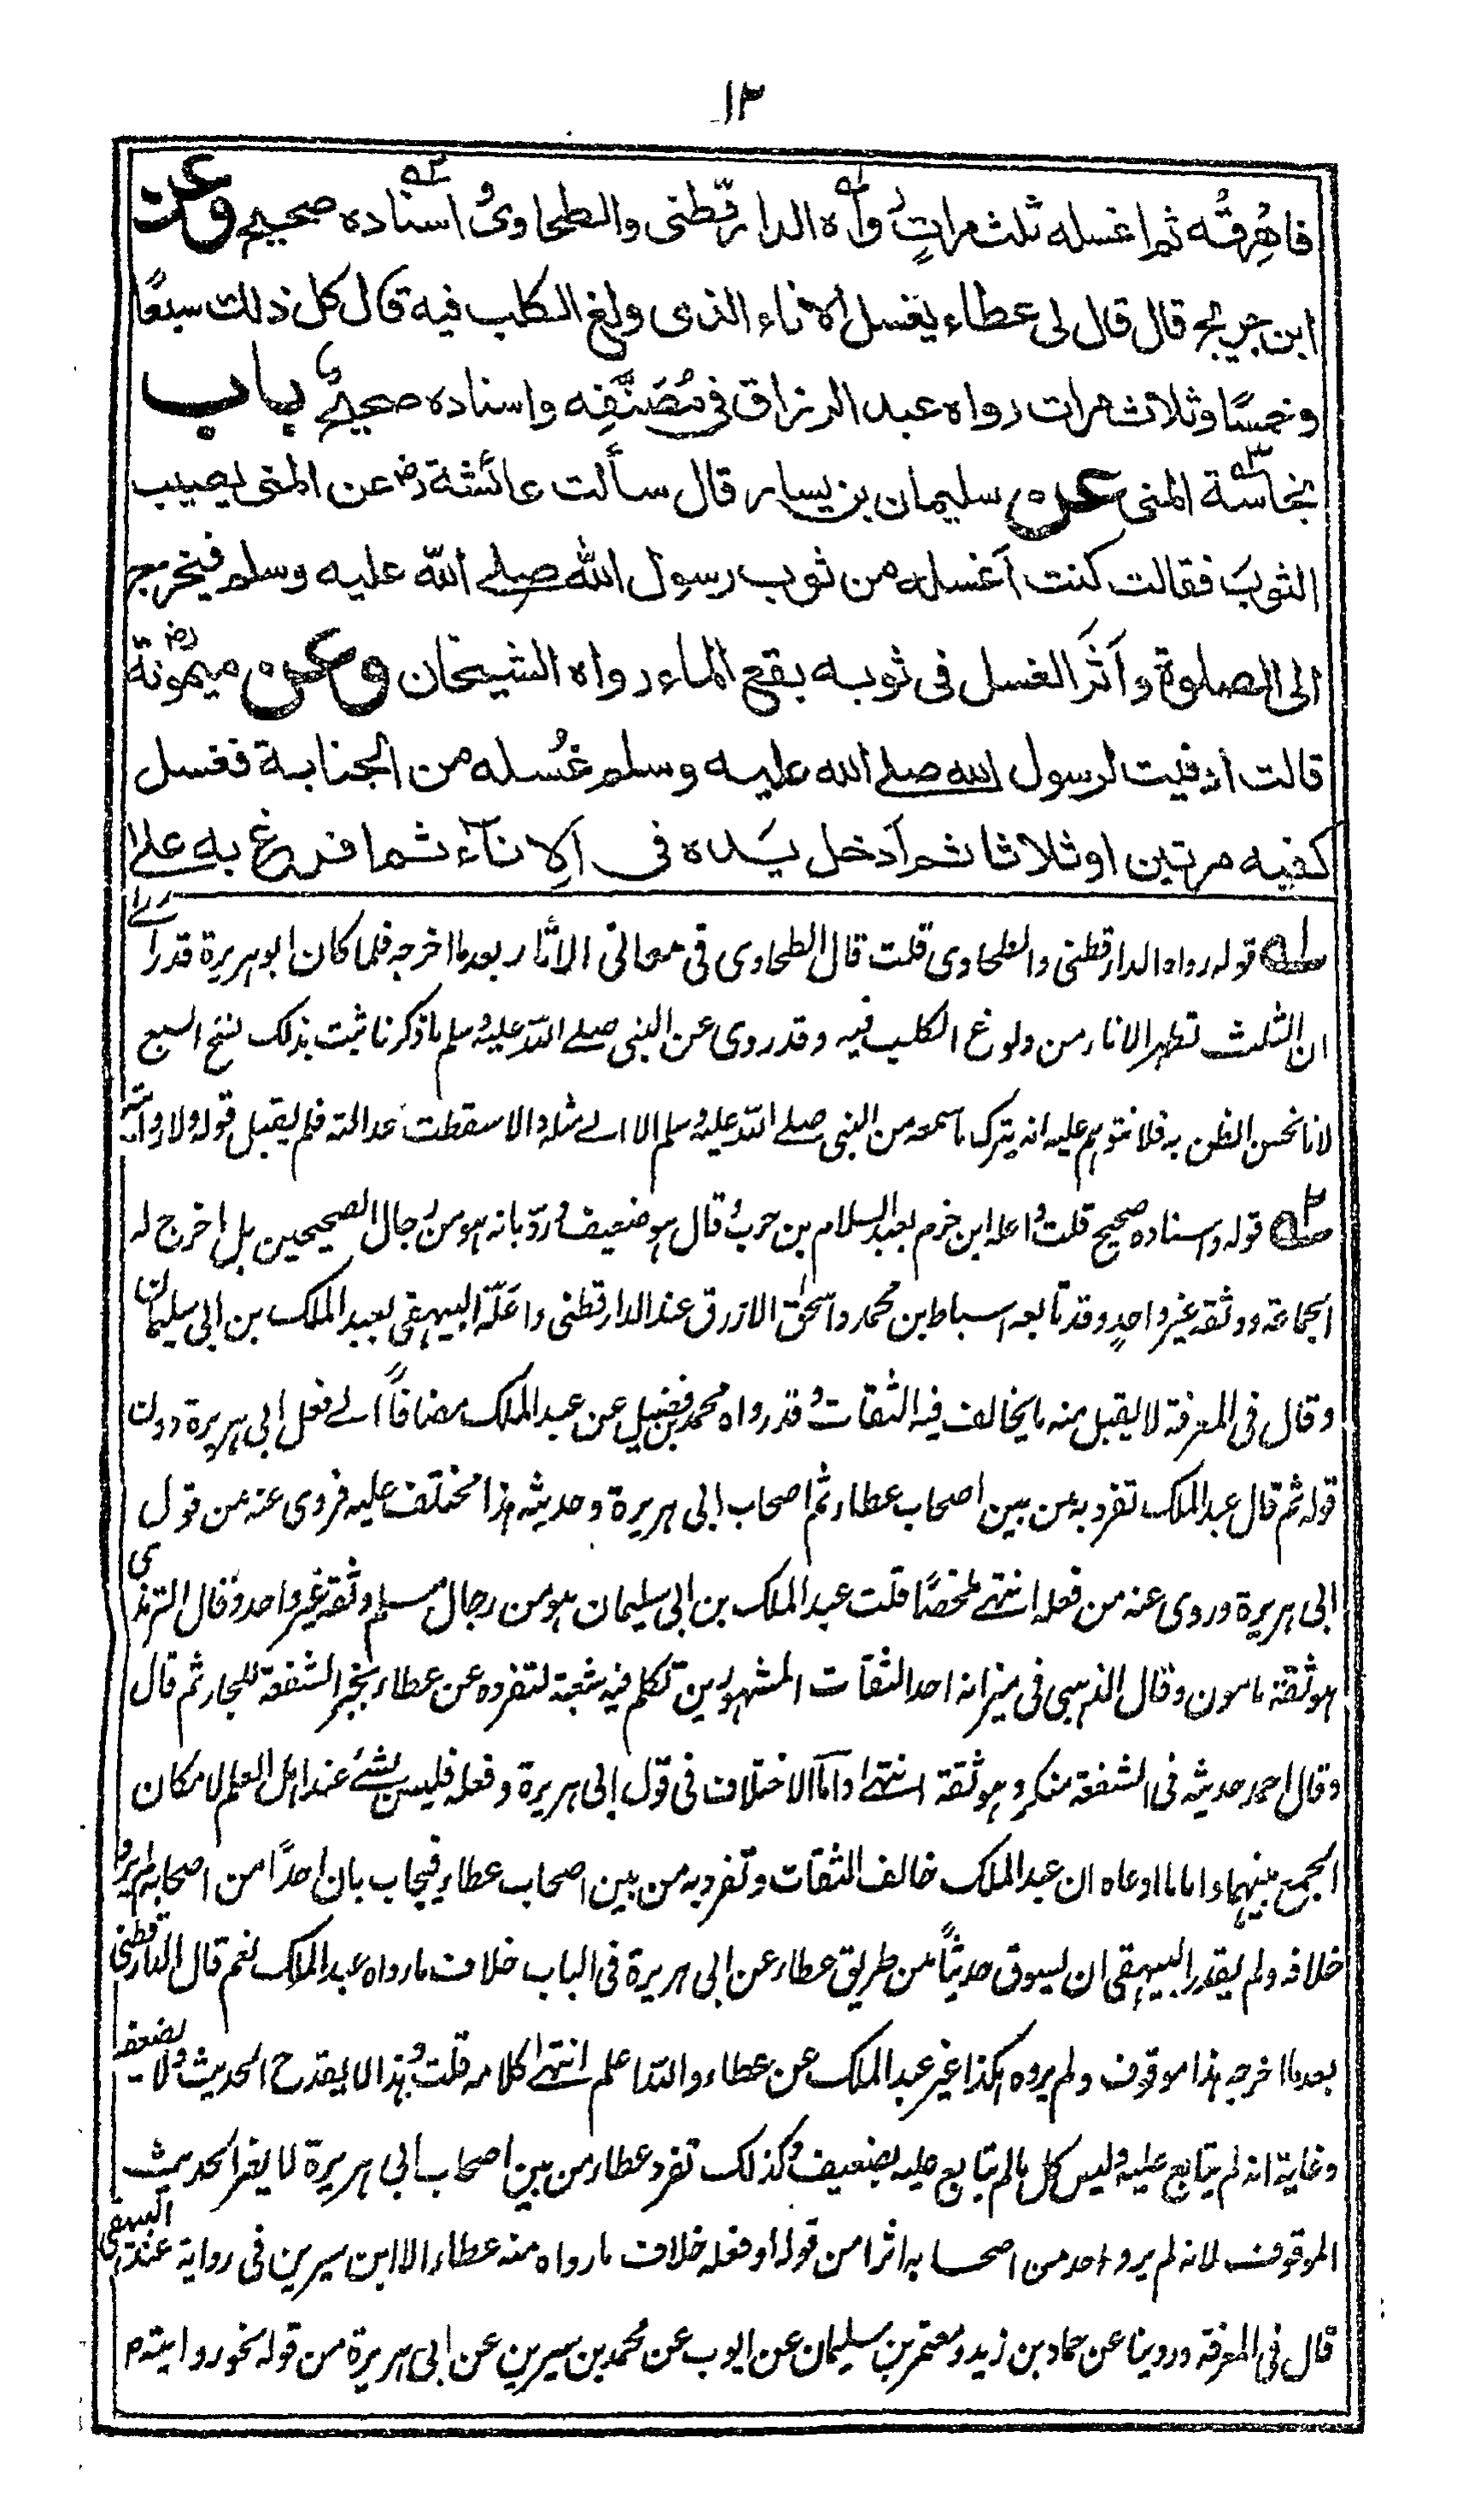 ١٢
فاهرقه ثم اغسله ثلث مراتٍ رواه الدارقطنى والطحاوىُ اسناده صحيح وعن
ابن جريج قال قال لى عطاء يغسل الاناء الذى ولغ الكلب فيه قال كل ذلك سبعًا
وخمسًا وثلاث مرات رواه عبد الرزاق فى مُصَنَّفِه واسناده صحيحٌ باب
نجاسة المنى عن سليمان بن يسار قال سألت عائشة رض عن المنى يصيب
الثوبَ فقالت كنت اَغسله من ثوب رسول الله صلے الله عليه وسلم فيخرج
الى الصلوة واَثَر الغسل فى ثوبه بقع الماء رواه الشيخان وعن ميمونة رض
قالت ادنيت لرسول الله صلے الله عليه وسلم غُسله من الجنابة فغسل
كفيه مرتين او ثلاثا ثم اَدخل يَده فى الاِناء ثم افرغ به علے
ل‍ه قوله رواه الدارقطنى والطحاوى قلت قال الطحاوى فى معانى الاثار بعد ما اخرجه فلما كان ابو هريرة قد رأے
ان الثلث تطهر الاناء من ولوغ الكلب فيه وقد روى عن النبى صلے الله عليه وسلم ما ذكرنا ثبت بذلك نسخ السبع
لانا نحسن الظن به فلا نتوهم عليه انه يترك ما سمعه من النبى صلے الله عليه وسلم الا الے مثله والا سقطت عدالته فلم يقبل قوله ولا روايته
٢ه قوله واسناده صحيح قلتُ اعله ابن حزم بعبد السلام بن حرب وُقال هو ضعيف وُردّ بانه هو من رجال الصحيحين بل اخرج له
الجماعة ووثقه غير واحدٍ وقد تابعه اسباط بن محمد واسحٰق الازرق عند الدارقطنى واَعَلّه البيهقى بعبد الملك بن ابى سليمان
وقال فى المعرفة لا يقبل منه ما يخالف فيه الثقات وُقد رواه محمد بن فضيل عن عبد الملك مضافاً الے فعل ابى هريرة دون
قوله ثم قال عبد الملك تفرد به من بين اصحاب عطاء ثم اصحاب ابى هريرة وحديثه هذا مختلف عليه فروى عنه من قول
ابى هريرة وروى عنه من فعله انتهے ملخصًا قلت عبد الملك بن ابى سليمان هو من رجال مسلم وثقه غير واحد وقال الترمذى
هو ثقة مامون وقال الذهبى فى ميزانه احد الثقات المشهورين تكلم فيه شعبة لتفرده عن عطاء بخبر الشفعة للجار ثم قال
وقال احمد حديثه فى الشفعة منكر وهو ثقة انتهے واما الاختلاف فى قول ابى هريرة وفعله فليس بشئ عند اهل العلم لامكان
الجمع بينهما واما ما ادعاه ان عبد الملك خالف الثقات وتفرد به من بين اصحاب عطاء فيجاب بان احدًا من اصحابه لم يرو
خلافه ولم يقدر البيهقى ان يسوق حديثاً من طريق عطاء عن ابى هريرة فى الباب خلاف ما رواه عبد الملك نعم قال الدارقطنى
بعد ما اخرجه هذا موقوف ولم يروه هكذا غير عبد الملك عن عطاء والله اعلم انتهے كلامه قلت وُهذا لا يقدح الحديث وُلا يضعفه
وغايته انه لم يتابع عليه وُليس كل ما لم يتابع عليه بضعيف وُكذلك تفرد عطاء من بين اصحاب ابى هريرة لا يضر الحديث
الموقوف لانه لم يرو احد من اصحابه اثرا من قوله او فعله خلاف ما رواه منه عطاء الا ابن سيرين فى رواية عند البيهقى
قال فى المعرفة وروينا عن حماد بن زيد ومعتمر بن سليمان عن ايوب عن محمد بن سيرين عن ابى هريرة من قوله نحو روايته م